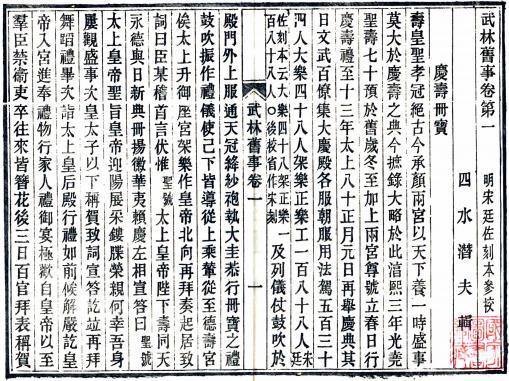 武林舊事卷第一　明宋廷佐刻本參校
四水潛夫輯
慶壽冊寶
壽皇聖孝冠絕古今承顏兩宮以天下養一時盛事
莫大於慶壽之典今摭錄大略於此淳熙三年光堯
聖壽七十預於舊歲冬至加上兩宮尊號立春日行
慶壽禮至十三年太上八十正月元日再舉慶典其
日文武百僚集大慶殿各服朝服用法駕五百三十
四人大樂四十八人架樂正樂工一百八十八人
佐刻本云大樂四十八架正樂一百八十八人○後校省作宋刻及列儀仗鼓吹於
武林舊事卷一　一
殿門外上服通天冠絳紗袍執大圭恭行冊寶之禮
鼓吹振作禮儀使已下皆導從上乘輦從至德壽宮
俟太上升御座宮架樂作皇帝北向再拜奏起居致
詞曰臣某稽首言伏惟聖號太上皇帝陛下壽同天
永德與日新典冊揚徽華夷賴慶左相宣答曰聖號
太上皇帝聖旨皇帝迎陽展采鏤牒榮親何幸吾身
屢觀盛事次皇太子以下稱賀致詞宣答訖竝再拜
舞蹈禮畢次詣太上皇后殿行禮如前候解嚴訖皇
帝入宮進奉禮物行家人禮御宴極歡自皇帝以至
羣臣禁衛吏卒往來皆簪花後三日百官拜表稱賀